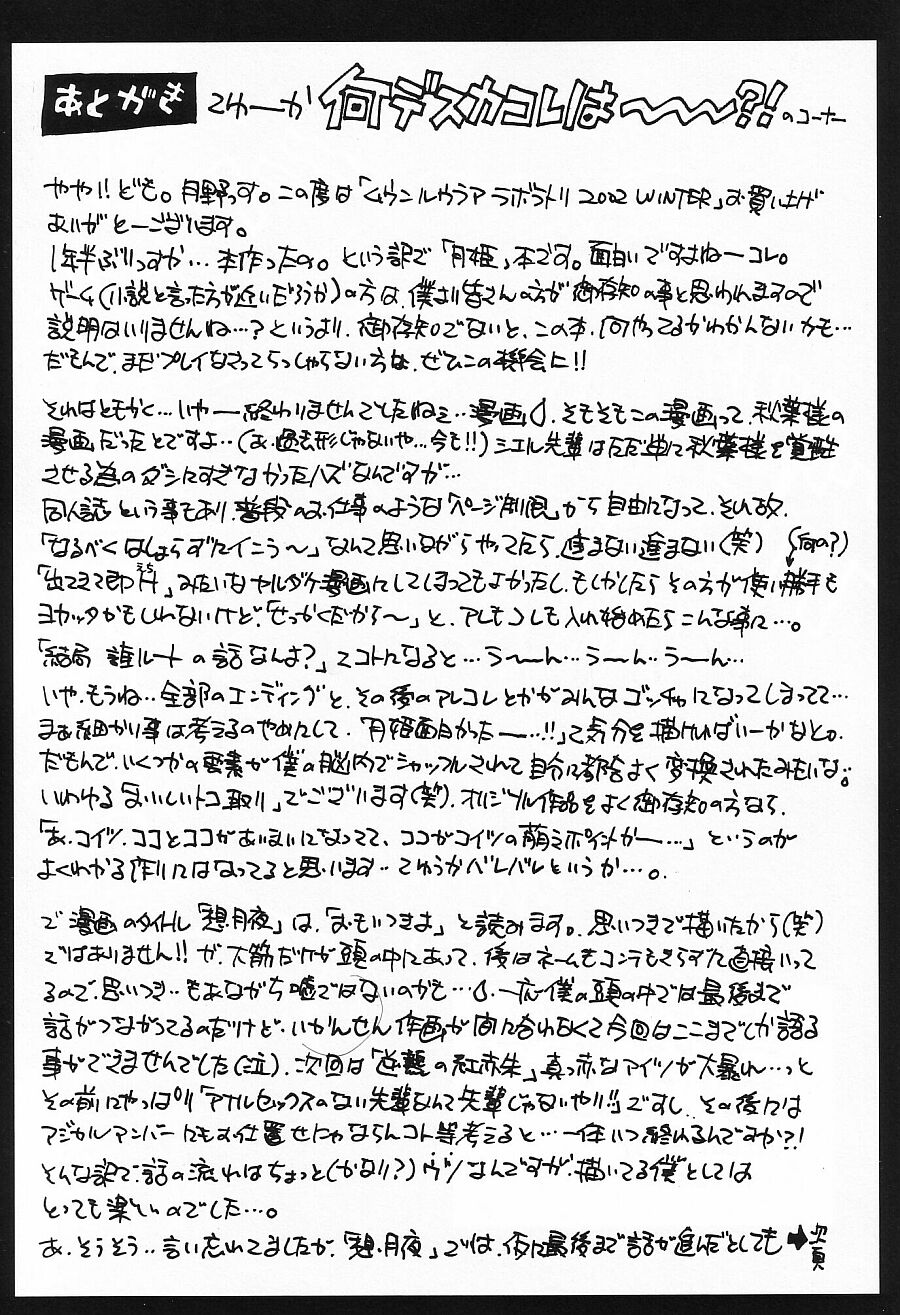 あとがき てゆーか 何デスカコレは〜〜〜?! のコーナー
やや!!ども。月野っす。この度は「ムウンルウラア ラボラトリ 2002 WINTER」お買い上げ
ありがとーございます。
1年半ぶりっすか…本作ったの。という訳で「月姫」本です。面白いですよねーコレ。
ゲーム(小説と言った方が近いだろうか)の方は、僕より皆さんの方が御存知の事と思われますので
説明はいりませんね…?というより、御存知でないと、この本、何やってるかわかんないカモ…
だもんで、まだプレイなさってらっしゃらない方は、ぜひこの機会に!!
それはともかく…いやー終わりませんでしたねェ…漫画。そもそもこの漫画って、秋葉様の
漫画だったとですよ…(あ、過去形じゃないや…今も!!)シエル先輩はただ単に秋葉様を覚醒
させる為のダシにすぎなかったハズなんですが…
同人誌という事もあり、普段のお仕事のような「ページ制限」から自由になって、それ故、
「なるべくはしょらずにイこう〜」なんて思いながらやってたら、進まない進まない(笑) (何の?)
「出てきて即H」みたいなヤルダケ漫画にしてしまってもよかったし、もしかしたらその方が使い勝手も
ヨカッタかもしれないけど、「せっかくだから〜」と、アレもコレも入れ始めたらこんな事に…。
「結局 誰ルートの話なんよ?」てコトになると…う〜〜ん…う〜ん…う〜ん…
いや、もうね…全部のエンディングと、その後のアレコレとかがみんなゴッチャになってしまってて…
まぁ細かい事は考えるのやめにして、「月姫面白かったー…!!」て気分を描ければいーかなと。
だもんで、いくつかの要素が僕の脳内でシャッフルされて自分に都合よく変換されたみたいな。
いわゆる「おいしいトコ取り」でございます(笑)。オリジナル作品をよく御存知の方なら、
「あ、コイツ、ココとココがあいまいになってて、ココがコイツの萌えポイントかー…」というのが
よくわかる作りにはなってると思います…てゆうかバレバレというか…。
で 漫画のタイトル「想月夜」は、「おもいつきよ」と読みます。思いつきで描いたから(笑)
ではありません!!が、大筋だけが頭の中にあって、後はネームもコンテもきらずた直接いって
るので、思いつき…もあながち嘘ではないのかも…一応僕の頭の中では最後まで
話がつながってるのだけど、いかんせん作画が間に合わなくて今回はここまでしか語る
事ができませんでした(泣)。次回は「逆襲の紅赤朱」真っ赤なアイツが大暴れ…っと
その前にやっぱり「アナルセックスのない先輩なんて先輩じゃないやい!!」ですし、その後には
マジカルアンバーにもお仕置せにゃならんコト等考えると…一体いつ終わるんですか?!
そんな訳で、話の流れはちょっと(かなり?)ウソなんですが、描いてる僕としては
とっても楽しいのでした…。
あ、そうそう…言い忘れてましたが、「想月夜」では、仮に最後まで話が進んだとしても➡次頁